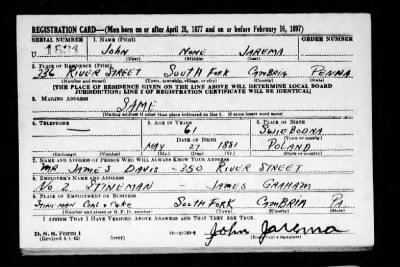 REGISTRATION CARD—(Men born on or after April 28, 1877 and on or before February 16, 1897)
SERIAL NUMBER 1. NAME (Print)
U JOHN NONE JAREMA
(First) (Middle) (Last)
2. PLACE OF RESIDENCE (Print)
336 RIVER STREET SOUTH FORK CAMBRIA PENNA
(Number and street) (Town, township, village, or city) (County) (State)
[THE PLACE OF RESIDENCE GIVEN ON THE LINE ABOVE WILL DETERMINE LOCAL BOARD
JURISDICTION; LINE 2 OF REGISTRATION CERTIFICATE WILL BE IDENTICAL]
3. MAILING ADDRESS
SAME
[Mailing address if other than place indicated on line 2. If same insert word same]
4. TELEPHONE 5. AGE IN YEARS 6. PLACE OF BIRTH
61
DATE OF BIRTH
MAY 27 1881 POLAND
(Exchange) (Number) (Mo.) (Day) (Yr.) (State or country)
7. NAME AND ADDRESS OF PERSON WHO WILL ALWAYS KNOW YOUR ADDRESS
MR JAMES DAVIS - 350 RIVER STREET
8. EMPLOYER'S NAME AND ADDRESS
NO 2 STINEMAN JAMES GRAHAM
9. PLACE OF EMPLOYMENT OR BUSINESS
STINEMAN COAL & COKE SOUTH FORK CAMBRIA PA
(Number and street or R. F. D. number) (Town) (County) (State)
I AFFIRM THAT I HAVE VERIFIED ABOVE ANSWERS AND THAT THEY ARE TRUE.
D. S. S. Form 1
(Revised 4-1-42) (over) John Jarema